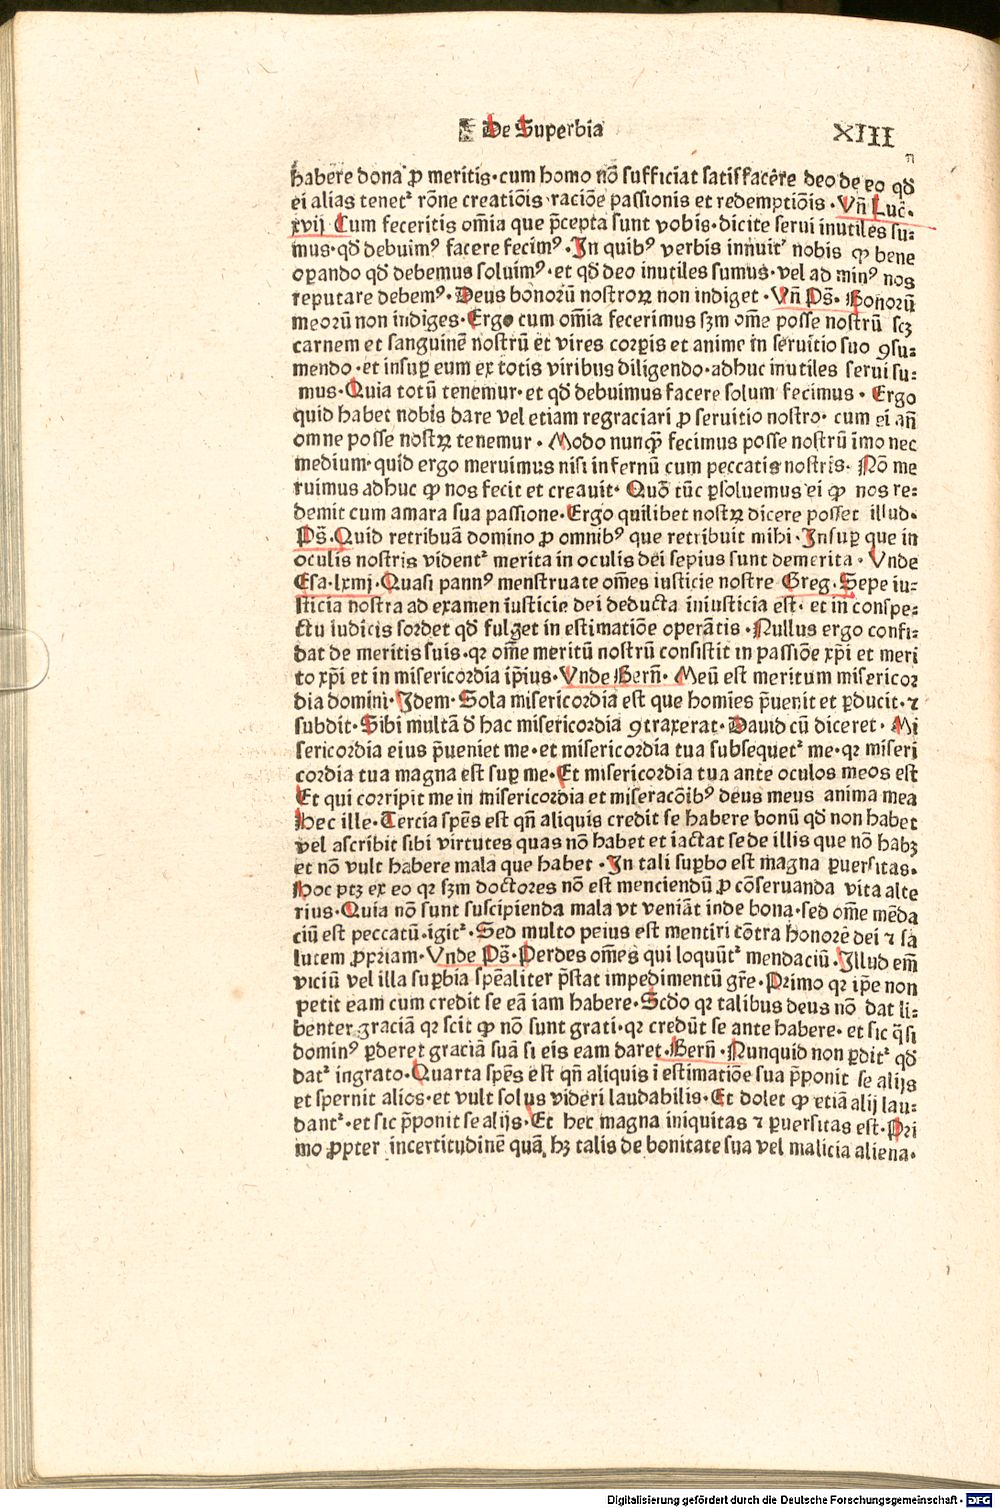 De Superbia XIII
habere dona ꝓ meritis·cum homo nō sufficiat satisfacere deo de eo qd̄
ei alias tenetᷣ rōne creatiōis raciōe passionis et redemptiōis·Vn̄ Luc̄·
xvij Cum feceritis om̄ia que p̄cepta sunt vobis·dicite serui inutiles su⸗
mus·qd̄ debuimꝰ facere fecimꝰ·In quibꝰ verbis innuitᷣ nobis ꝙ bene
operando qd̄ debemus soluimꝰ·et qd̄ deo inutiles sumus·vel ad minꝰ nos
reputare debemꝰ·Deus bonorū nostroꝝ non indiget·Vn̄ Ps̄·Bonorū
meorū non indiges·Ergo cum om̄ia fecerimus sꝫm om̄e posse nostrū scꝫ
carnem et sanguinē nostrū et vires corꝑis et anime in seruitio suo ꝯsu⸗
mendo·et insuꝑ eum ex totis viribus diligendo·adhuc inutiles serui su⸗
mus·Quia totū tenemur·et qd̄ debuimus facere solum fecimus·Ergo
quid habet nobis dare vel etiam regraciari ꝓ seruitio nostro·cum ei an̄
omne posse nostꝝ tenemur·Modo nunqꝫ fecimus posse nostrū imo nec
medium·quid ergo meruimus nisi infernū cum peccatis nostris·Nō me
ruimus adhuc ꝙ nos fecit et creauit·Quō tūc ꝑsoluemus ei ꝙ nos re⸗
demit cum amara sua passione·Ergo quilibet nostꝝ dicere posset illud·
Ps̄·Quid retribuā domino ꝓ omnibꝰ que retribuit mihi·Insuꝑ que in
oculis nostris videntᷣ merita in oculis dei sepius sunt demerita·Vnde
Esa·lxiiij·Quasi pannꝰ menstruate om̄es iusticie nostre Greg·Sepe iu⸗
sticia nostra ad examen iusticie dei deducta iniusticia est·et in conspe⸗
ctu iudicis sordet qd̄ fulget in estimatiōe operātis·Nullus ergo confi⸗
dat de meritis suis·qꝛ om̄e meritū nostrū consistit in passiōe xp̄i et meri
to xp̄i et in misericordia ip̄ius·Vnde Bern̄·Meū est meritum misericor
dia domini·Idem·Sola misericordia est que homies p̄uenit et ꝑducit·⁊
subdit·Sibi multā d̄ hac misericordia ꝯtraxerat·Dauid cū diceret·Mi
sericordia eius p̄ueniet me·et misericordia tua subsequetᷣ me·qꝛ miseri
cordia tua magna est suꝑ me·Et misericordia tua ante oculos meos est
Et qui corripit me in misericordia et miseracōibꝰ deus meus anima mea
Hec ille·Tercia spēs est qn̄ aliquis credit se habere bonū qd̄ non habet
vel ascribit sibi virtutes quas nō habet et iactat se de illis que nō habꝫ
et nō vult habere mala que habet·In tali suꝑbo est magna ꝑuersitas·
Hoc ptꝫ ex eo qꝛ sꝫm doctores nō est menciendū ꝓ cōseruanda vita alte
rius·Quia nō sunt suscipienda mala vt veniāt inde bona·sed om̄e mēda
ciū est peccatū·igitᷣ·Sed multo peius est mentiri cōtra honorē dei ⁊ sa
lutem ꝓpriam·Vnde Ps̄·Perdes om̄es qui loquūtᷣ mendaciū·Illud em̄
viciū vel illa suꝑbia spēaliter p̄stat impedimentū gr̄e·Primo qꝛ ip̄e non
petit eam cum credit se eā iam habere·Scd̄o qꝛ talibus deus nō dat li⸗
benter graciā qꝛ scit ꝙ nō sunt grati·qꝛ credūt se ante habere·et sic q̄si
dominꝰ ꝑderet graciā suā si eis eam daret·Bern̄·Nunquid non ꝑditᷣ qd̄
datᷣ ingrato·Quarta spēs est qn̄ aliquis i estimatiōe sua p̄ponit se alijs
et spernit alios·et vult solus videri laudabilis·Et dolet ꝙ etiā alij lau⸗
dantᷣ·et sic p̄ponit se alijs·Et hec magna iniquitas ⁊ ꝑuersitas est·Pri
mo ꝓpter incertitudinē quā hꝫ talis de bonitate sua vel malicia aliena·
Digitalisierung gefördert durch die Deutsche Forschungsgemeinschaft - DFG